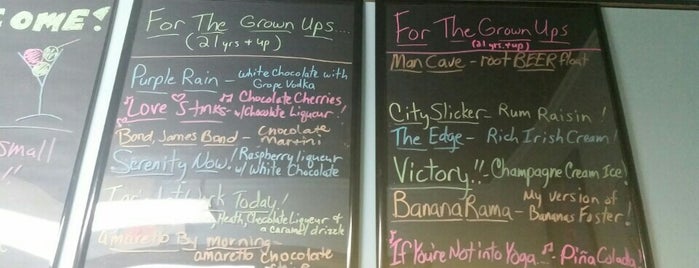 OME!
small
For The Grown Ups....
(21 yrs + up)
Purple Rain - White Chocolate with
Grape Vodka
Love Stinks - Chocolate Cherries,
w/Chocolate Liqueur!
Bond, James Bond - Chocolate
Martini
Serenity Now! Raspberry liqueur
w/ White Chocolate
Work Today!
Heath, Chocolate Liqueur &
a caramel drizzle
amaretto By morning -
amaretto chocolate
For The Grown Ups
(21 yrs. + up)
Man Cave - root BEER float
City Slicker - Rum Raisin!
The Edge - Rich Irish Cream!
Victory!! - Champagne Cream Ice!
BananaRama - My version of
Bananas Foster!
If You're Not into Yoga... - Piña Colada